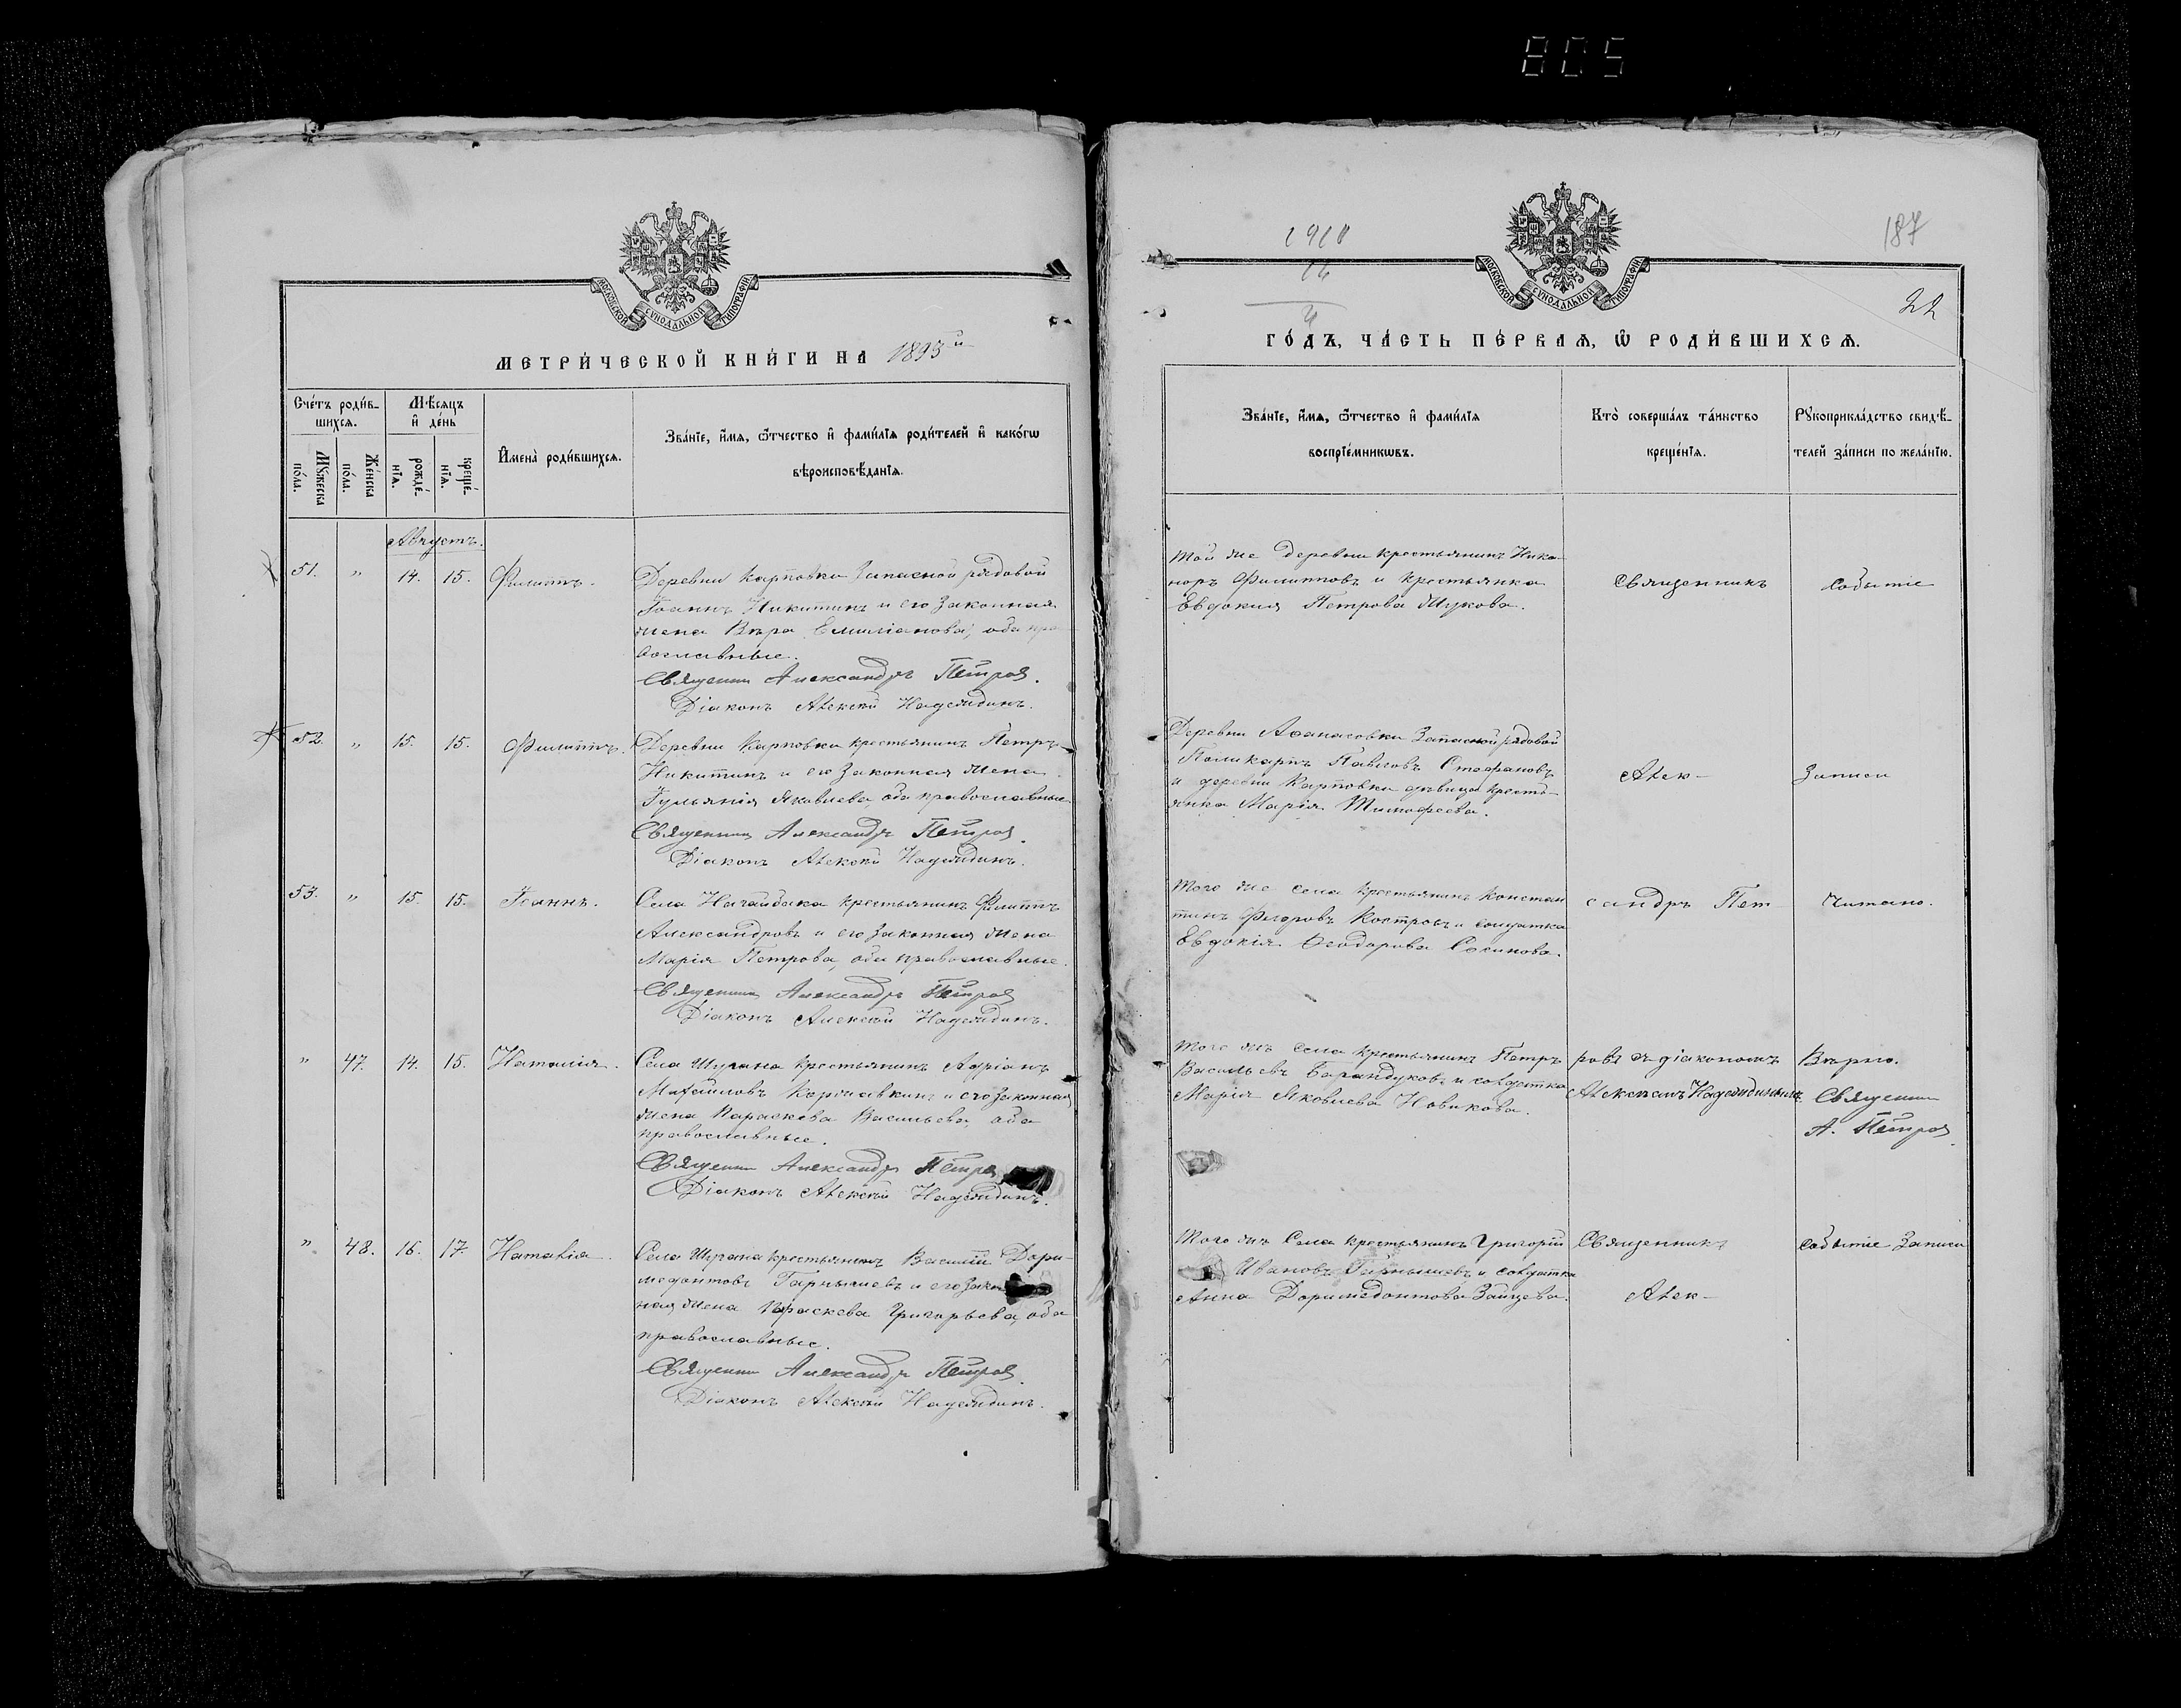 805
МОСКОВСКОЙ СУНОДАЛЬНОЙ ТИПОГРАФІИ
МЕТРИ́ЧЕСКОЙ КНИ́ГИ НА 1893й
Сче́тъ роди́в-
шихсѧ.
Мꙋ́жеска
по́ла.
Же́нска
по́ла.
Мѣ́сѧцъ
и҆ де́нь
рожде́-
нїѧ.
креще́-
нїѧ.
И҆мена̀ роди́вшихсѧ.
Зва́нїе, и҆́мѧ, ѻ҆́тчество и҆ фами́лїѧ роди́телей и҆ како́гѡ
вѣроисповѣ́данїѧ.
Августъ.
51. " 14. 15. Филиппъ.
Деревни Карповки запасной рядовой
Іоаннъ Никитинъ и его законная
жена Вѣра Емиліанова, оба пра
вославные.
Священник Александръ Петров.
Діаконъ Алексѣй Надеждинъ.
52. " 15. 15. Филиппъ.
Деревни Карповки крестьянинъ Петръ
Никитинъ и его законная жена
Іульянія Яковлева, оба православные
Священник Александръ Петров.
Діаконъ Алексѣй Надеждинъ.
53. " 15. 15. Іоаннъ.
Села Нагайбака крестьянинъ Филиппъ
Александровъ и его законная жена
Марія Петрова, оба православные.
Священник Александръ Петров
Діаконъ Алексѣй Надеждинъ.
" 47. 14. 15. Наталія.
Села Шугана крестьянинъ Адріанъ
Михайловъ и его законная
жена Параскева Васильева, оба
православные.
Священник Александръ Петров
Діаконъ Алексѣй Надеждинъ.
" 48. 16. 17. Наталія
Села Шугана крестьянинъ Василій Дори-
медонтовъ Гарнышевъ и его закон
ная жена Параскева Григорьева, оба
православные.
Священник Александръ Петров.
Діаконъ Алексѣй Надеждинъ.
187
22
МОСКОВСКОЙ СУНОДАЛЬНОЙ ТИПОГРАФІИ
ГО́ДЪ, ЧА́СТЬ ПЕ́РВАѦ, Ѡ҆ РОДИ́ВШИХСѦ.
Зва́нїе, и҆́мѧ, ѻ҆́тчество и҆ фами́лїѧ
воспрїе́мникѡвъ.
Кто̀ соверша́лъ та́инство
креще́нїѧ.
Рꙋкоприкла́дство свидѣ́-
телей за́писи по жела́нїю.
Той же деревни крестьянинъ Ника-
норъ Филипповъ и крестьянка
Евдокия Петрова Жукова.
Священникъ
Событіе
Деревни Аѳанасовки Запасной рядовой
Поликарпъ Павловъ Стефановъ
и деревни Карповки дѣвица кресть-
янка Марія Тимофеева.
Алек-
записи
Того же села крестьянинъ Констан
тинъ Федоровъ Костровъ и солдатка
Евдокія Ѳеодорова
сандръ Пет
Читано.
Того жъ села крестьянинъ Петръ
Васильевъ Барандуковъ и солдатка
Марія Яковлева Новикова.
ровъ съ діакономъ
Алексѣемъ Надеждинымъ.
Вѣрно.
Священник
А. Петров
Того жъ Села крестьянинъ Григорій
Ивановъ Гарнышевъ и солдатка
Анна Доримедонтова Зайцева.
Священникъ
Алек-
Событіе Записи